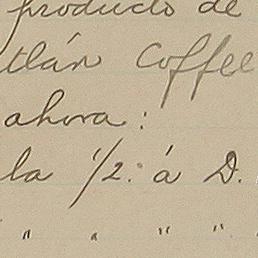 producto de
tlán Coffee
ahora:
la 1/2. á D.
" " " " "